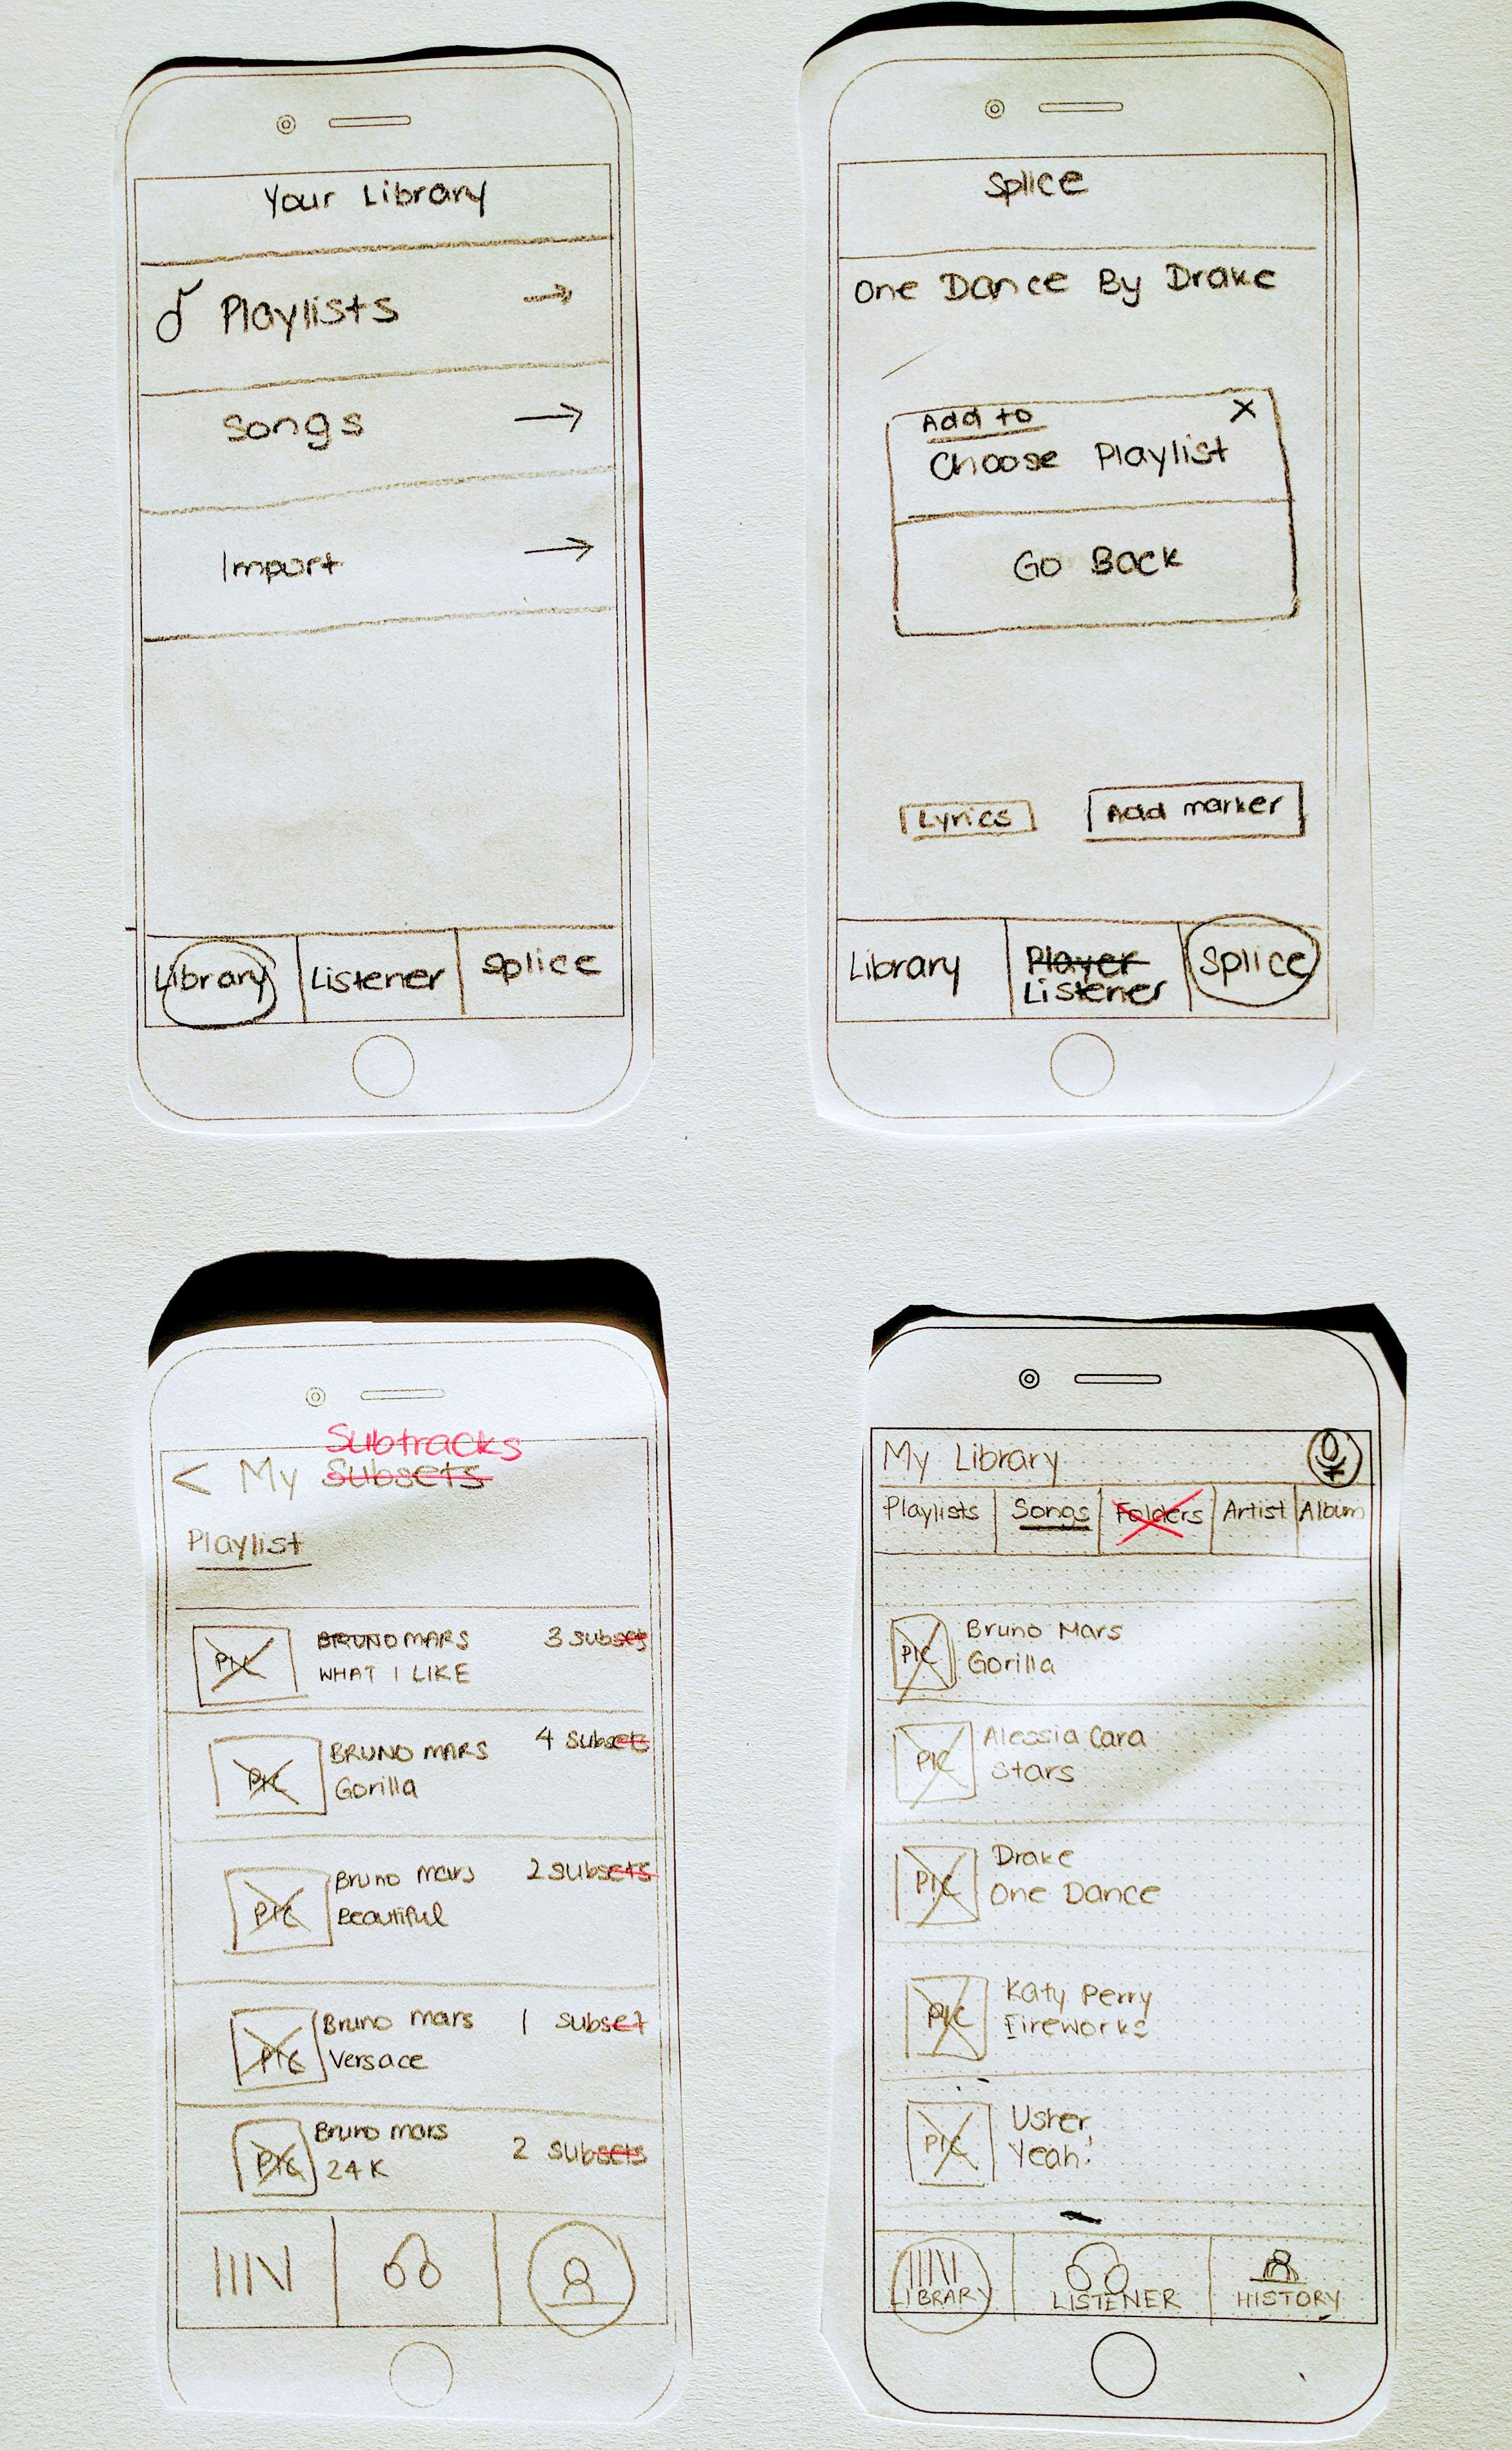 Your Library
Playlists
Songs
Import
Library Listener Splice
Splice
One Dance By Drake
Add to X
Choose Playlist
Go Back
Lyrics Add marker
Library Player Splice
Listener
Subtracks
< My Subsets
Playlist
PIC BRUNO MARS 3 subsets
WHAT I LIKE
PIC BRUNO MARS 4 subsets
Gorilla
PIC Bruno mars 2 subsets
Beautiful
PIC Bruno mars 1 subset
Versace
PIC Bruno mars 2 subsets
24K
My Library
Playlists Songs Folders Artist Album
PIC Bruno Mars
Gorilla
PIC Alessia Cara
Stars
PIC Drake
One Dance
PIC Katy Perry
Fireworks
PIC Usher,
Yeah!
LIBRARY LISTENER HISTORY